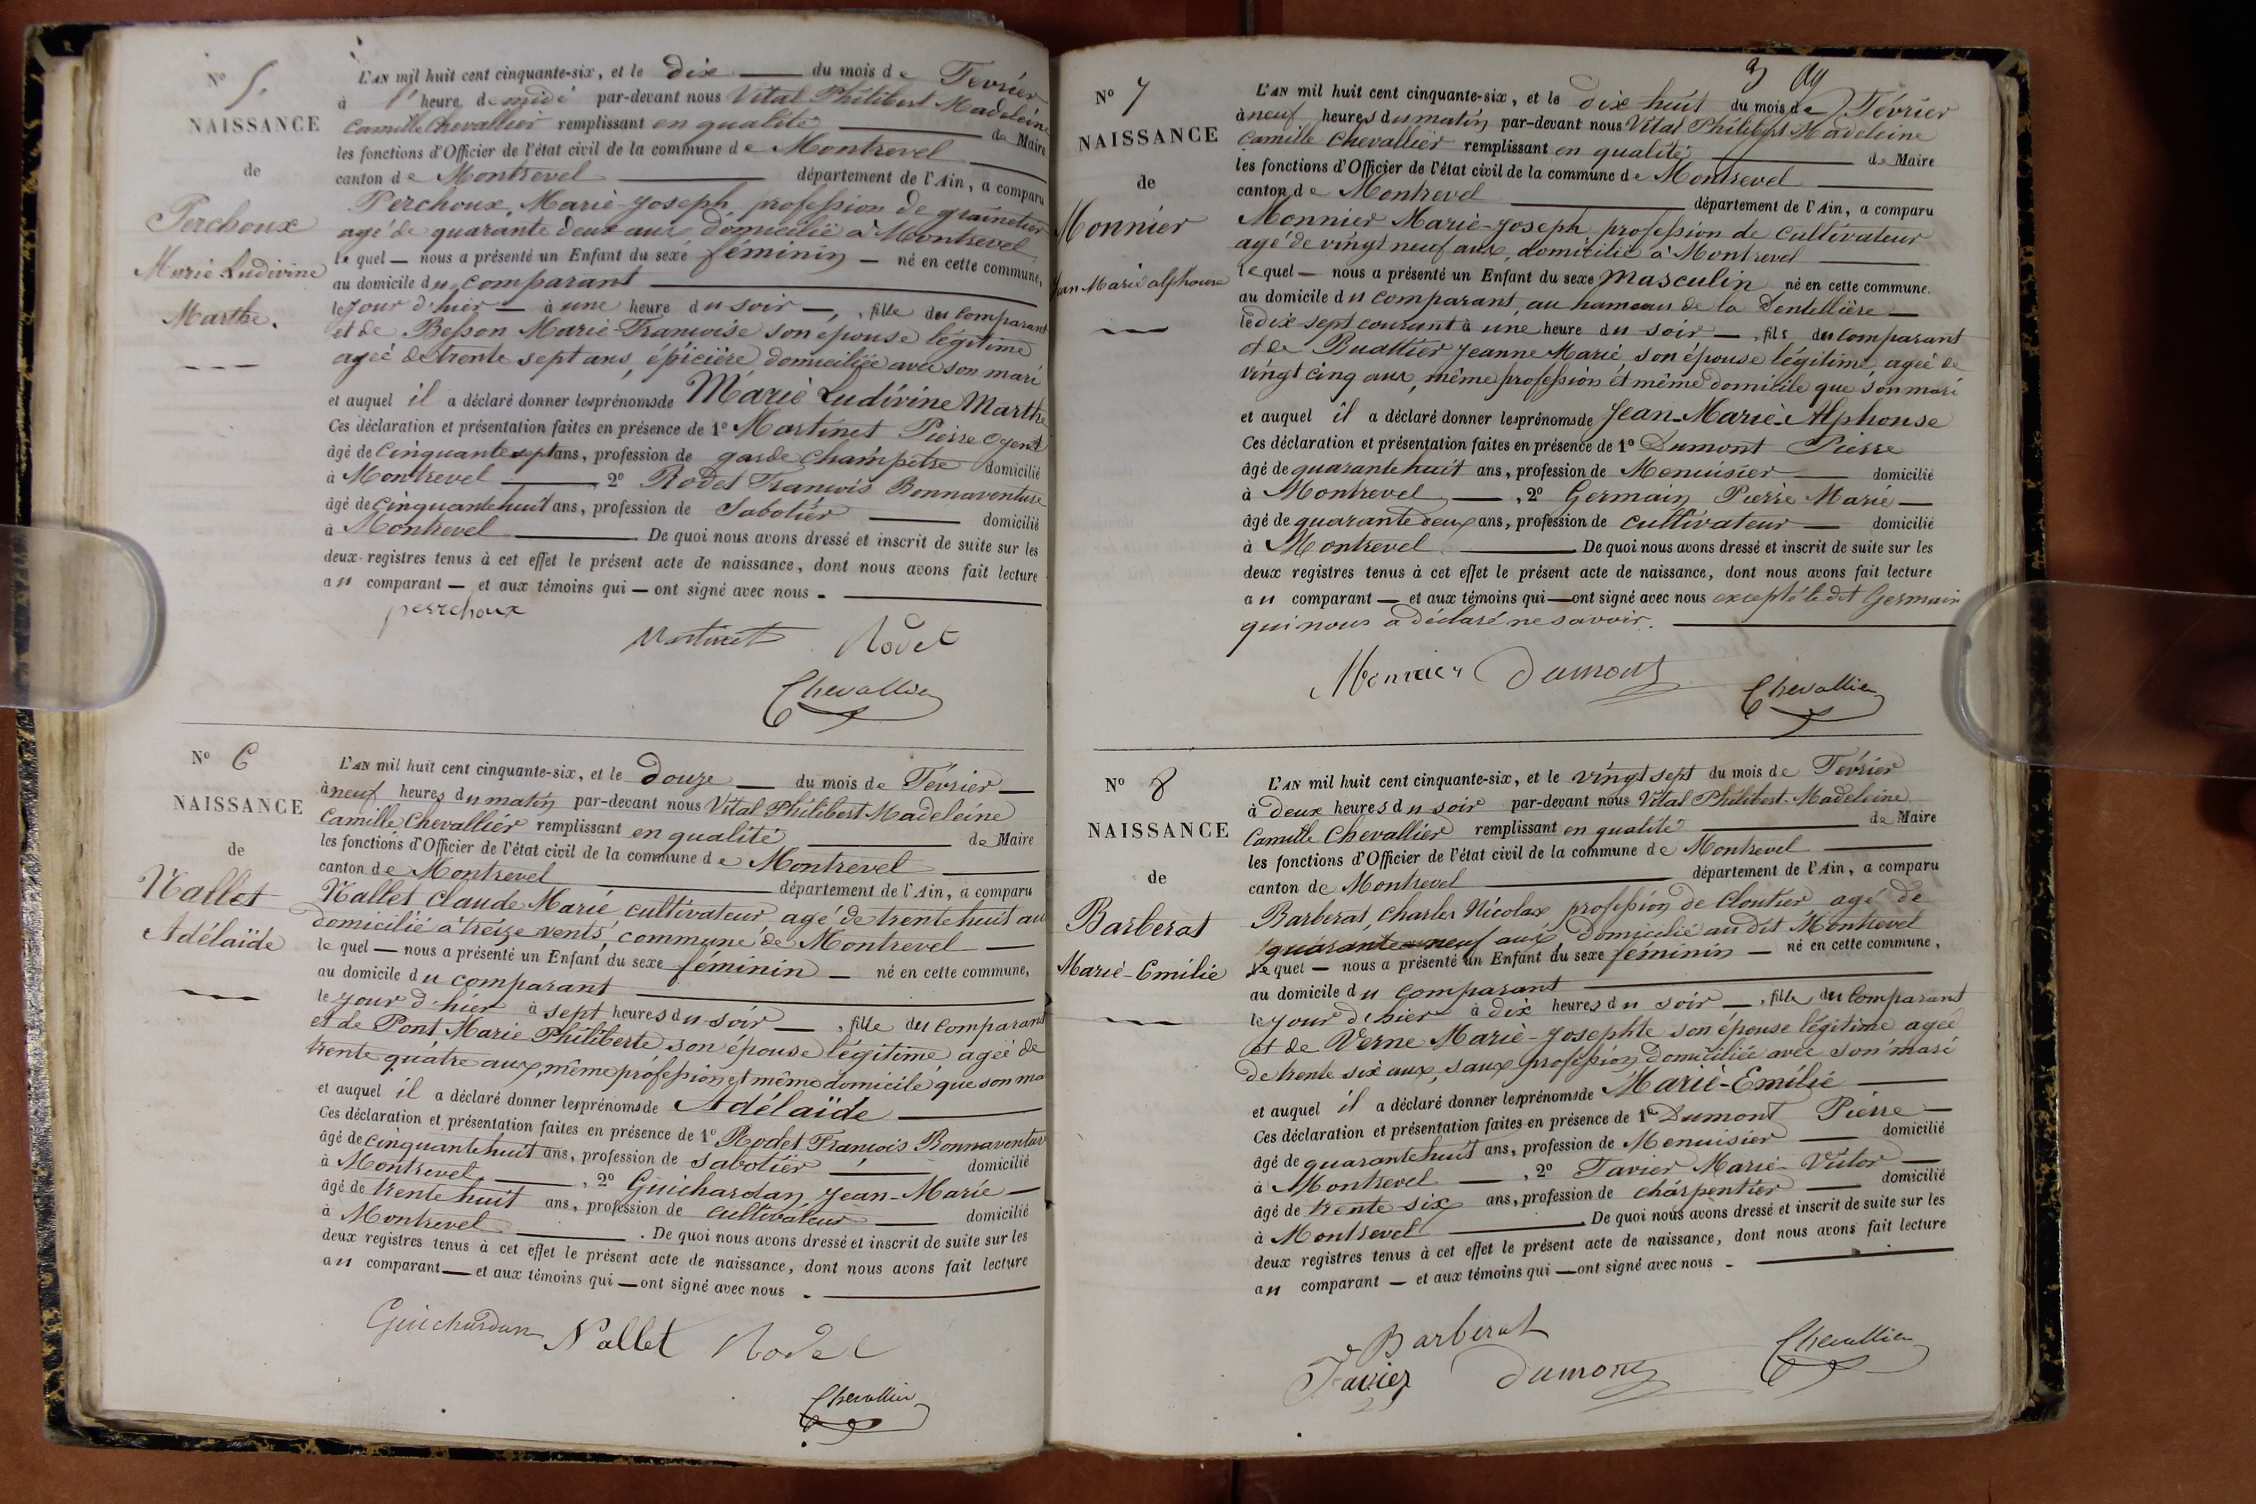 N° 5.
NAISSANCE
de
Perchoux
Marie Ludivine
Marthe.
L'AN mil huit cent cinquante-six, et le dix du mois de Février
à l' heure de midi par-devant nous Vital Philibert Madeleine
Camille Chevallier remplissant en qualité de Maire
les fonctions d'Officier de l'état civil de la commune de Montrevel
canton de Montrevel département de l'Ain, a comparu
Perchoux, Marie-Joseph profession de grainetier
agé de quarante deux ans domicilié à Montrevel
lequel nous a présenté un Enfant du sexe féminin né en cette commune,
au domicile du comparant
le jour d'hier à une heure du soir, fille du comparant
et de Besson Marie-Francoise son épouse légitime
agée de trente sept ans, épicière domiciliée avec son mari
et auquel il a déclaré donner les prénoms de Marie Ludivine Marthe
Ces déclaration et présentation faites en présence de 1° Martinet Pierre
âgé de cinquante sept ans, profession de garde champêtre domicilié
à Montrevel, 2° Rodet Francois Bonnaventure
âgé de cinquante huit ans, profession de Sabotier domicilié
à Montrevel De quoi nous avons dressé et inscrit de suite sur les
deux registres tenus à cet effet le présent acte de naissance, dont nous avons fait lecture
au comparant et aux témoins qui ont signé avec nous.
perrchoux
Martinet Rodet
Chevallier
N° 6
NAISSANCE
de
Nallet
Adélaïde
L'AN mil huit cent cinquante-six, et le douze du mois de Février
à neuf heures du matin par-devant nous Vital Philibert Madeleine
Camille Chevallier remplissant en qualité de Maire
les fonctions d'Officier de l'état civil de la commune de Montrevel
canton de Montrevel département de l'Ain, a comparu
Nallet Claude Marie cultivateur agé de trente huit an
domicilié à treize vents, commune de Montrevel
lequel nous a présenté un Enfant du sexe féminin né en cette commune,
au domicile du comparant
le jour d'hier à sept heures du soir, fille du comparant
et de Pont Marie Philiberte son épouse légitime agée de
trente quatre ans, même profession et même domicile que son ma
et auquel il a déclaré donner les prénoms de Adélaïde
Ces déclaration et présentation faites en présence de 1° Rodet Francois Bonnaventure
âgé de cinquante huit ans, profession de Sabotier domicilié
à Montrevel, 2° Guichardan Jean-Marie
âgé de trente huit ans, profession de cultivateur domicilié
à Montrevel. De quoi nous avons dressé et inscrit de suite sur les
deux registres tenus à cet effet le présent acte de naissance, dont nous avons fait lecture
au comparant et aux témoins qui ont signé avec nous.
Guichardan Nallet Rodet
Chevallier
3
N° 7
NAISSANCE
de
Monnier
Jean Marie alphonse
L'AN mil huit cent cinquante-six, et le dix huit du mois de Février
à neuf heures du matin par-devant nous Vital Philibert Madeleine
Camille Chevallier remplissant en qualité de Maire
les fonctions d'Officier de l'état civil de la commune de Montrevel
canton de Montrevel département de l'Ain, a comparu
Monnier Marie-Joseph profession de cultivateur
agé de vingt neuf ans, domicilié à Montrevel
lequel nous a présenté un Enfant du sexe masculin né en cette commune.
au domicile du comparant, au hameau de la Dentellière
le dix sept courant à une heure du soir, fils du comparant
et de Buattier Jeanne Marie son épouse légitime agée de
vingt cinq ans, même profession et même domicile que son mari
et auquel il a déclaré donner les prénoms de Jean-Marie-Alphonse
Ces déclaration et présentation faites en présence de 1° Dumont Pierre
âgé de quarante huit ans, profession de Menuisier domicilié
à Montrevel, 2° Germain Pierre Marie
âgé de quarante deux ans, profession de cultivateur domicilié
à Montrevel. De quoi nous avons dressé et inscrit de suite sur les
deux registres tenus à cet effet le présent acte de naissance, dont nous avons fait lecture
au comparant et aux témoins qui ont signé avec nous excepté le dit Germain
qui nous a déclaré ne savoir.
Monnier Dumont
Chevallier
N° 8
NAISSANCE
de
Barberat
Marie-Emilie
L'AN mil huit cent cinquante-six, et le vingt sept du mois de Février
à deux heures du soir par-devant nous Vital Philibert Madeleine
Camille Chevallier remplissant en qualité de Maire
les fonctions d'Officier de l'état civil de la commune de Montrevel
canton de Montrevel département de l'Ain, a comparu
Barberat, Charles Nicolas profession de Cloutier agé de
quarante neuf ans domicilié au dit Montrevel
lequel nous a présenté un Enfant du sexe féminin né en cette commune,
au domicile du comparant
le jour d'hier à dix heures du soir, fille du comparant
et de Verne Marie-Josephte son épouse légitime agée
de trente six ans, sans profession domiciliée avec son mari
et auquel il a déclaré donner les prénoms de Marie-Emilie
Ces déclaration et présentation faites en présence de 1° Dumont Pierre
âgé de quarante huit ans, profession de Menuisier domicilié
à Montrevel, 2° Favier Marie-Victor
âgé de trente six ans, profession de charpentier domicilié
à Montrevel. De quoi nous avons dressé et inscrit de suite sur les
deux registres tenus à cet effet le présent acte de naissance, dont nous avons fait lecture
au comparant et aux témoins qui ont signé avec nous.
Barberat
Favier Dumont
Chevallier